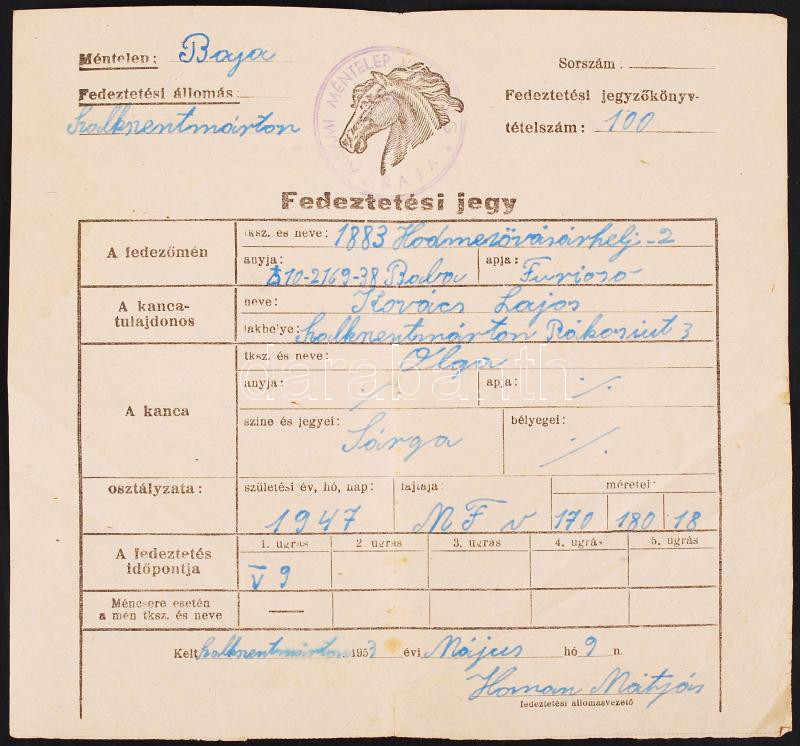 Méntelen: Baja
Sorszám:
Fedeztetési állomás:
Szalkszentmárton
Fedeztetési jegyzőkönyv-
tételszám: 100
ÁLLAMI MÉNTELEP
BAJA
Fedeztetési jegy
A fedezőmén
tksz. és neve: 1883 Hodmezővásárhelj-2
anyja: 10-2169-38 Baba apja: Furioso
A kanca-
tulajdonos
neve: Kovács Lajos
lakhe'ye: Szalkszentmárton Rákosiut 3
A kanca
tksz. és neve: Olga
anyja: ·/. apja: ·/.
szine és jegyei: Sárga
bélyegei: ·/.
darabanth
osztályzata:
születési év, hó, nap: fajtaja: méretei:
1947 MFv 170 180 18
A fedeztetés
időpontja
1. ugrás 2 ugrás 3. ugrás 4. ugrás 5. ugrás
V 9
Méncsere esetén
a mén tksz. és neve
—
Kelt Szalkszentmárton 1953 évi Május hó 9 n.
Homan Mátyás
fedeztetési állomásvezető